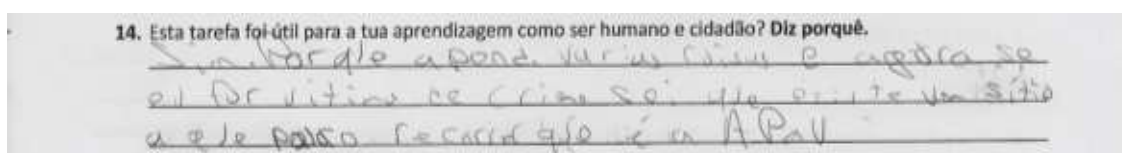 14. Esta tarefa foi útil para a tua aprendizagem como ser humano e cidadão? Diz porquê.
Sim. Porque aprendi varias coisas e agora se
eu for vitima de crime sei que existe um sítio
a que posso recorrer que é a APaV